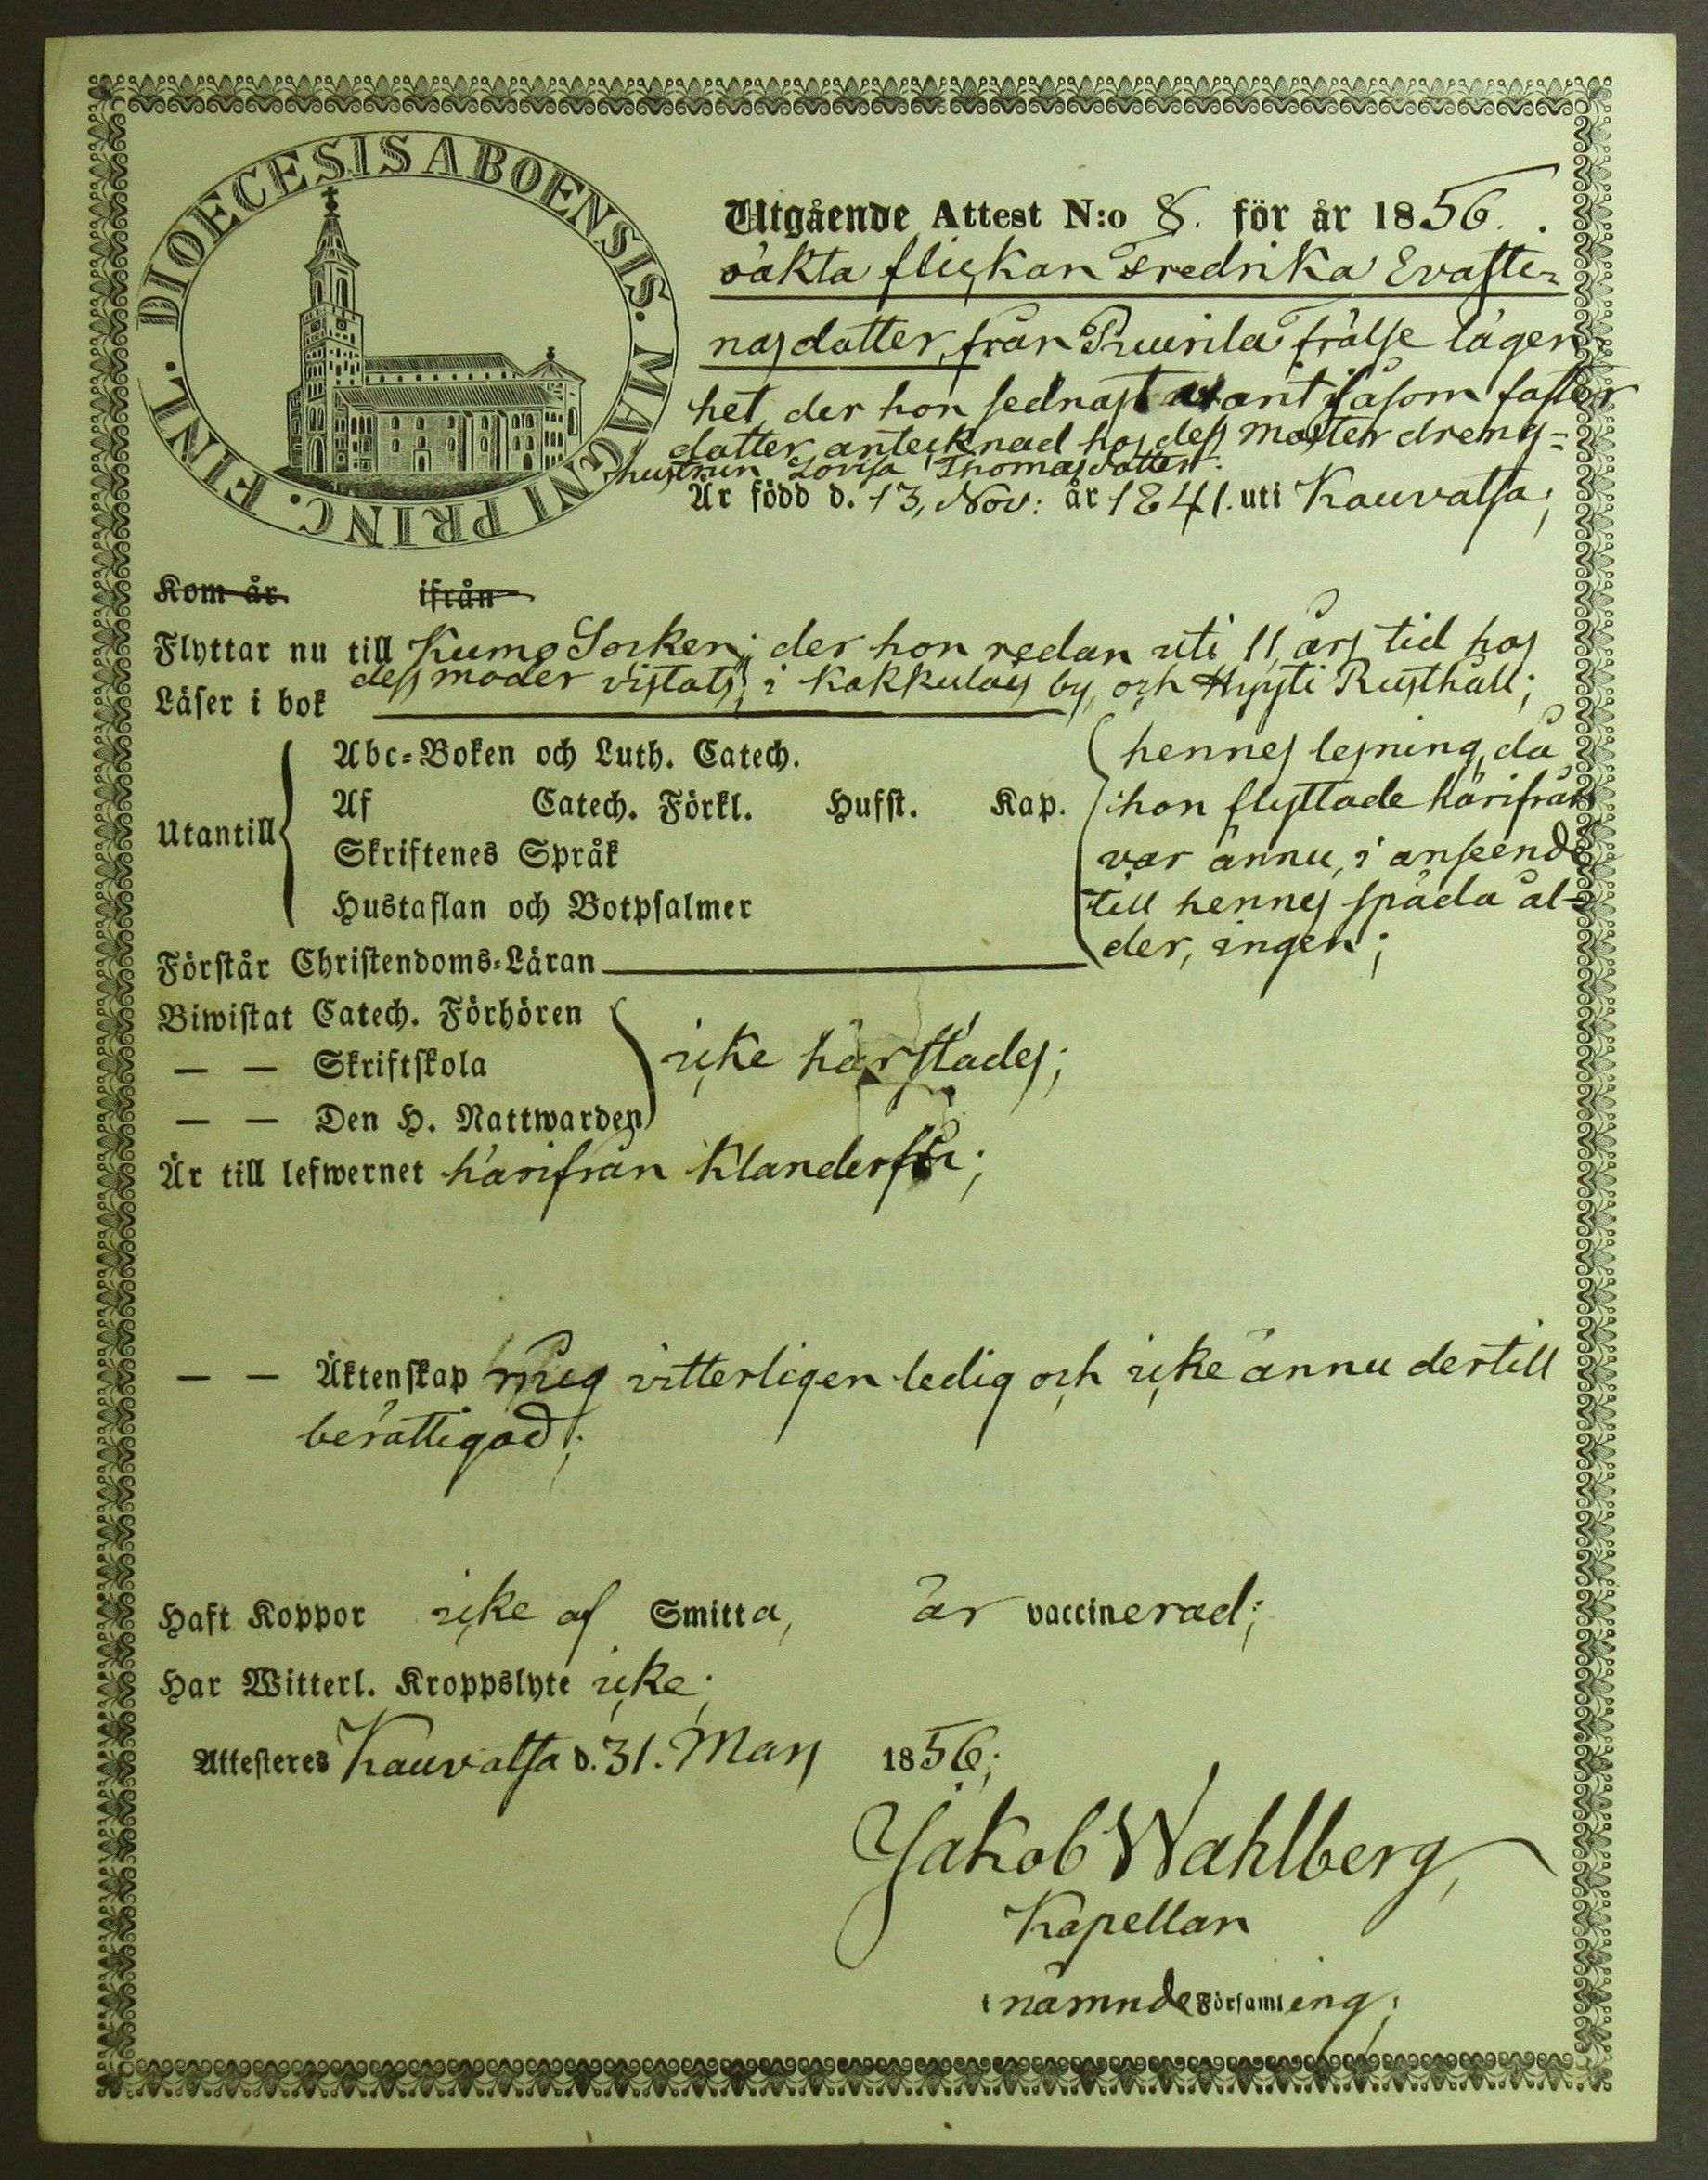 DIOECESIS ABOENSIS. MAGNI PRINC. FINL.
Utgående Attest N:o 8. för år 1856.
oäkta flickan Fredrika Evaste-
nasdotter, från Puurila frälse lägen-
het, der hon sednast varit såsom foster
dotter antecknad hos dess moster drengs-
hustrun Lovisa Thomasdotter.
Är född d. 13, Nov: år 1841. uti Kauvatsa;
Kom år ifrån
Flyttar nu till Kumo Socken; der hon redan uti 11 års tid hos
dess moder vistats, i Kakkulais by, och Hyyti Rusthåll;
Läser i bok
Utantill
Abc-Boken och Luth. Catech.
Af Catech. Förkl. Husst. Kap.
Skriftenes Språk
Hustaflan och Botpsalmer
hennes lesning, då
hon flyttade härifrån
var ännu, i anseende
till hennes späda ål-
der, ingen;
Förstår Christendoms-Läran
Biwistat Catech. Förhören
— — Skriftskola
— — Den H. Nattwarden
icke härstädes;
Är till lefwernet härifrån klanderfri;
— — Äktenskap mig vitterligen ledig och icke ännu dertill
berättigad;
Haft Koppor icke af Smitta, är vaccinerad;
Har Witterl. Kroppslyte icke;
Attesteres Kauvatsa d. 31. Mars 1856;
Jakob Wahlberg,
Kapellan
i nämnde Församling;